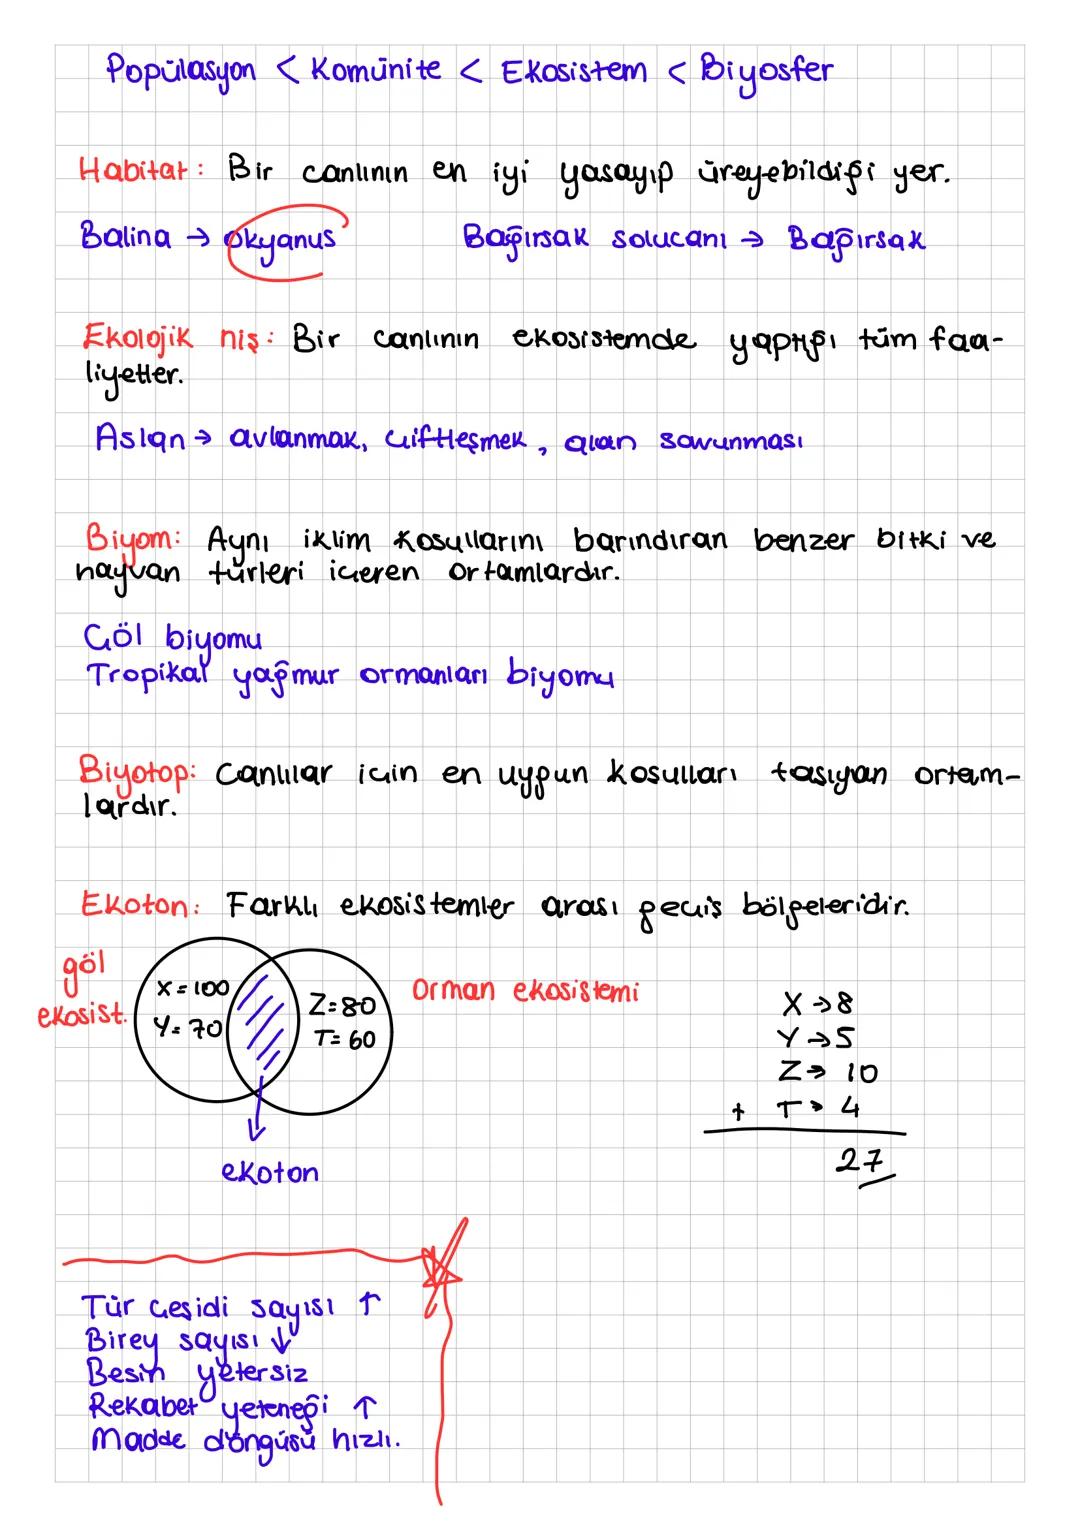 Popülasyon < Komünite < Ekosistem < Biyosfer
Habitat: Bir canlının en iyi yaşayıp üreyebildiği yer.
Balina → okyanus Bağırsak solucanı → Bağırsak
Ekolojik niş: Bir canlının ekosistemde yaptığı tüm faa-
liyetler.
Aslan → avlanmak, çiftleşmek, alan savunması
Biyom: Aynı iklim koşullarını barındıran benzer bitki ve
hayvan türleri içeren ortamlardır.
Göl biyomu
Tropikal yağmur ormanları biyomu
Biyotop: Canlılar için en uygun koşulları taşıyan ortam-
lardır.
Ekoton: Farklı ekosistemler arası geçiş bölgeleridir.
göl
ekosist.
X=100
Y=70
Z=80
T=60
Orman ekosistemi
ekoton
X → 8
Y → 5
Z → 10
+ T → 4
27
Tür çeşidi sayısı ↑
Birey sayısı ↓
Besin yetersiz
Rekabet yeteneği ↑
Madde döngüsü hızlı.